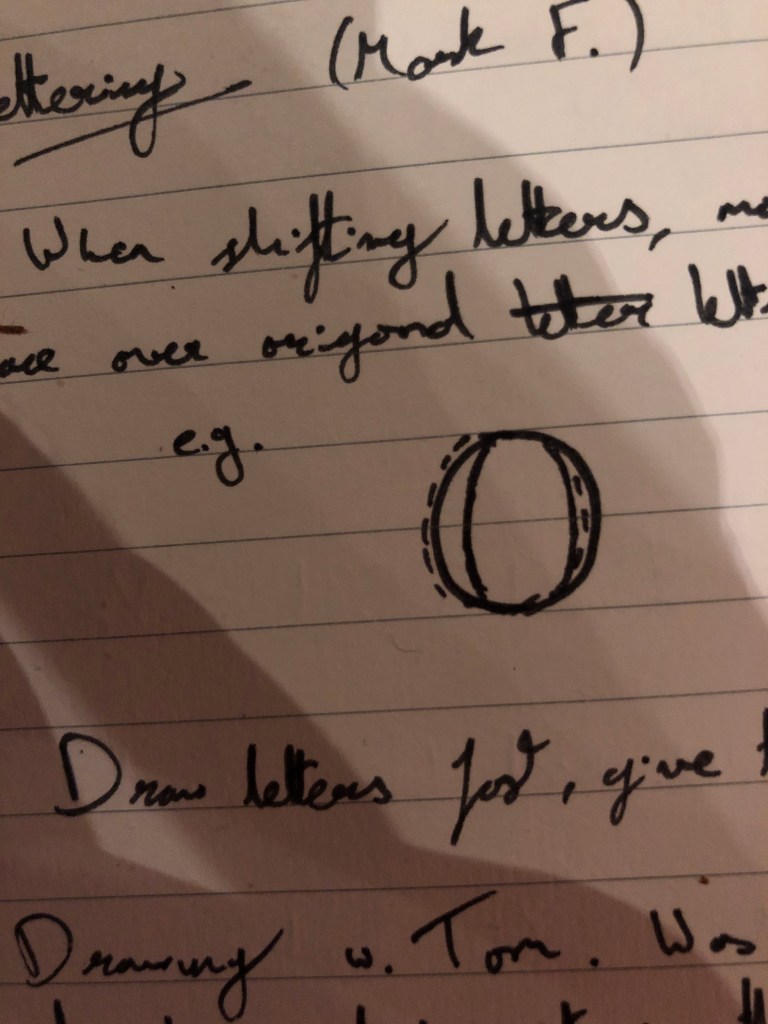 ettering (Mark F.)
When shifting letters,
over original letter
e.g.
O
Draw letters fast, give
Drawing w. Tom. Was